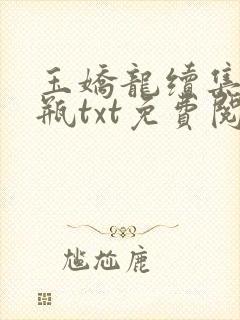 玉嬌龍續集
瓶txt免費閱
尷尬鹿